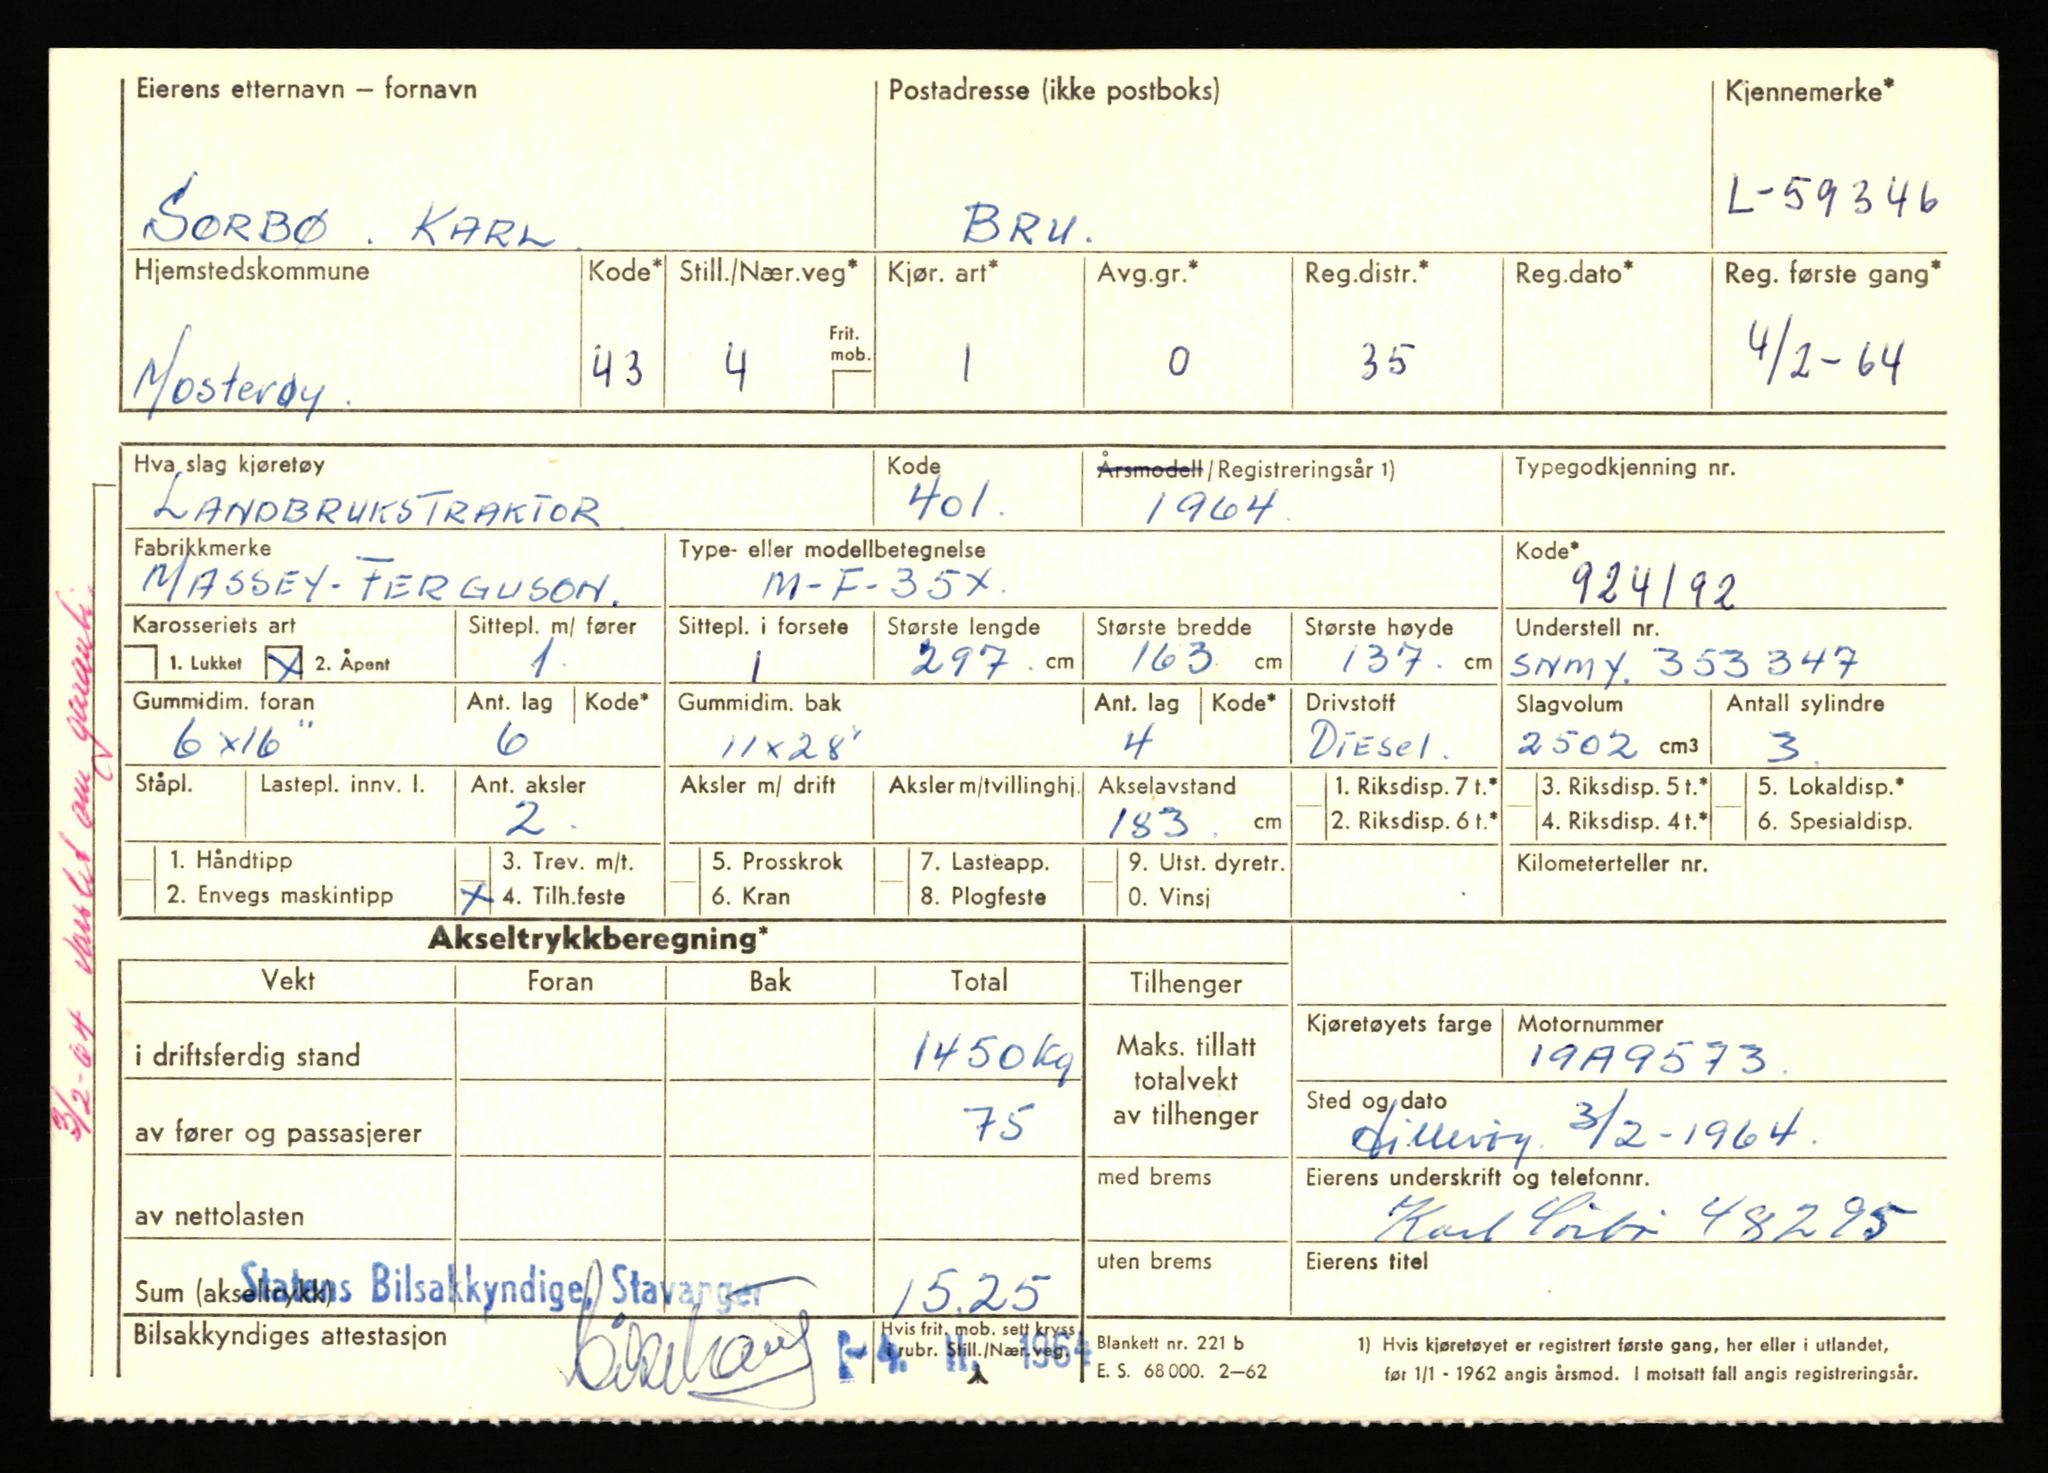 Eierens etternavn – fornavn Postadresse (ikke postboks) Kjennemerke*
SORBØ. KARL. BRU. L-59346
Hjemstedskommune Kode* Still./Nær.veg* Kjør. art* Avg.gr.* Reg.distr.* Reg.dato* Reg. første gang*
Frit. mob.
Mosterøy. 43 4 1 0 35 4/2-64
Hva slag kjøretøy Kode Årsmodell/Registreringsår 1) Typegodkjenning nr.
LANDBRUKSTRAKTOR. 401. 1964.
Fabrikkmerke Type- eller modellbetegnelse Kode*
MASSEY-FERGUSON. M-F-35X. 924192
Karosseriets art Sittepl. m/ fører Sittepl. i forsete Største lengde Største bredde Største høyde Understell nr.
1. Lukket X 2. Åpent 1. 1 297. cm 163 cm 137. cm SNMY. 353347
Gummidim. foran Ant. lag Kode* Gummidim. bak Ant. lag Kode* Drivstoff Slagvolum Antall sylindre
6x16" 6 11x28" 4 Diesel. 2502 cm3 3
Ståpl. Lastepl. innv. l. Ant. aksler Aksler m/ drift Aksler m/tvillinghj. Akselavstand 1. Riksdisp. 7 t.* 3. Riksdisp. 5 t.* 5. Lokaldisp.*
2. 183. cm 2. Riksdisp. 6 t.* 4. Riksdisp. 4 t.* 6. Spesialdisp.
1. Håndtipp 3. Trev. m/t. 5. Prosskrok 7. Lasteapp. 9. Utst. dyretr. Kilometerteller nr.
2. Envegs maskintipp X 4. Tilh.feste 6. Kran 8. Plogfeste 0. Vinsj
Akseltrykkberegning*
Vekt Foran Bak Total Tilhenger
Kjøretøyets farge Motornummer
i driftsferdig stand 1450 kg Maks. tillatt totalvekt av tilhenger 19A9573.
Sted og dato
av fører og passasjerer 75 3/2-1964.
med brems Eierens underskrift og telefonnr.
av nettolasten Karl Sörbö 48295
uten brems Eierens titel
Sum (akseltrykk) 15.25
Statens Bilsakkyndige, Stavanger
Bilsakkyndiges attestasjon Hvis frit. mob. sett kryss i rubr. Still./Nær.veg.
-4. II. 1964
Blankett nr. 221 b
E. S. 68 000. 2–62
1) Hvis kjøretøyet er registrert første gang, her eller i utlandet,
før 1/1 - 1962 angis årsmod. I motsatt fall angis registreringsår.
3/2-64 om